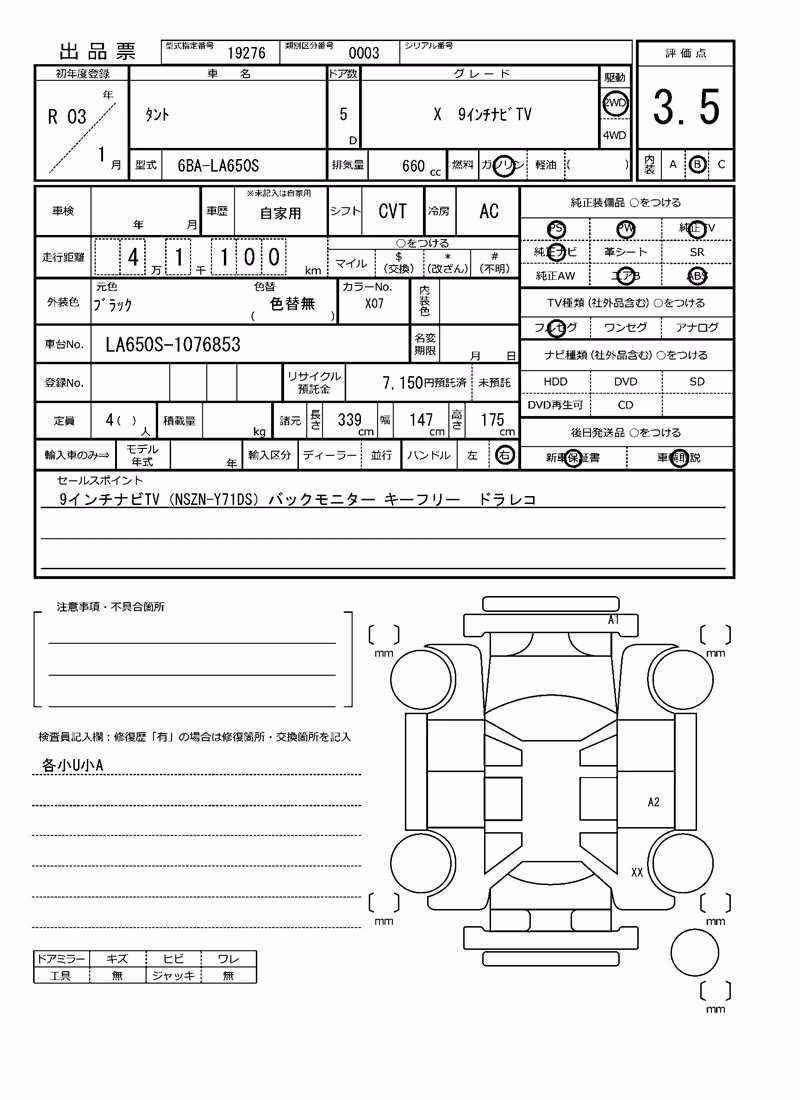 出品票 型式指定番号 19276 類別区分番号 0003 シリアル番号
評価点
3.5
内装 A B C
初年度登録 車名 ドア数 グレード 駆動
R 03 年 1 月 タント 5 D X 9インチナビTV 2WD
4WD
型式 6BA-LA650S 排気量 660 cc 燃料 ガソリン 軽油 ( )
車検 年 月 車歴 ※未記入は自家用 自家用 シフト CVT 冷房 AC
走行距離 4 万 1 千 1 0 0 km ○をつける
マイル $(交換) *(改ざん) #(不明)
外装色 元色 ブラック 色替 ( 色替無 ) カラーNo. X07 内装色
車台No. LA650S-1076853 名変期限 月 日
登録No. リサイクル預託金 7,150円預託済 未預託
定員 4( ) 人 積載量 kg 諸元 長さ 339 cm 幅 147 cm 高さ 175 cm
輸入車のみ⇒ モデル年式 年 輸入区分 ディーラー 並行 ハンドル 左 右
純正装備品 ○をつける
PS PW 純正TV
純正ナビ 革シート SR
純正AW エアB ABS
TV種類(社外品含む)○をつける
フルセグ ワンセグ アナログ
ナビ種類(社外品含む)○をつける
HDD DVD SD
DVD再生可 CD
後日発送品 ○をつける
新車保証書 車輌取説
セールスポイント
9インチナビTV (NSZN-Y71DS) バックモニター キーフリー ドラレコ
注意事項・不具合箇所
検査員記入欄:修復歴「有」の場合は修復箇所・交換箇所を記入
各小U小A
ドアミラー キズ ヒビ ワレ
工具 無 ジャッキ 無
A1
mm mm
A2
XX
mm mm
mm